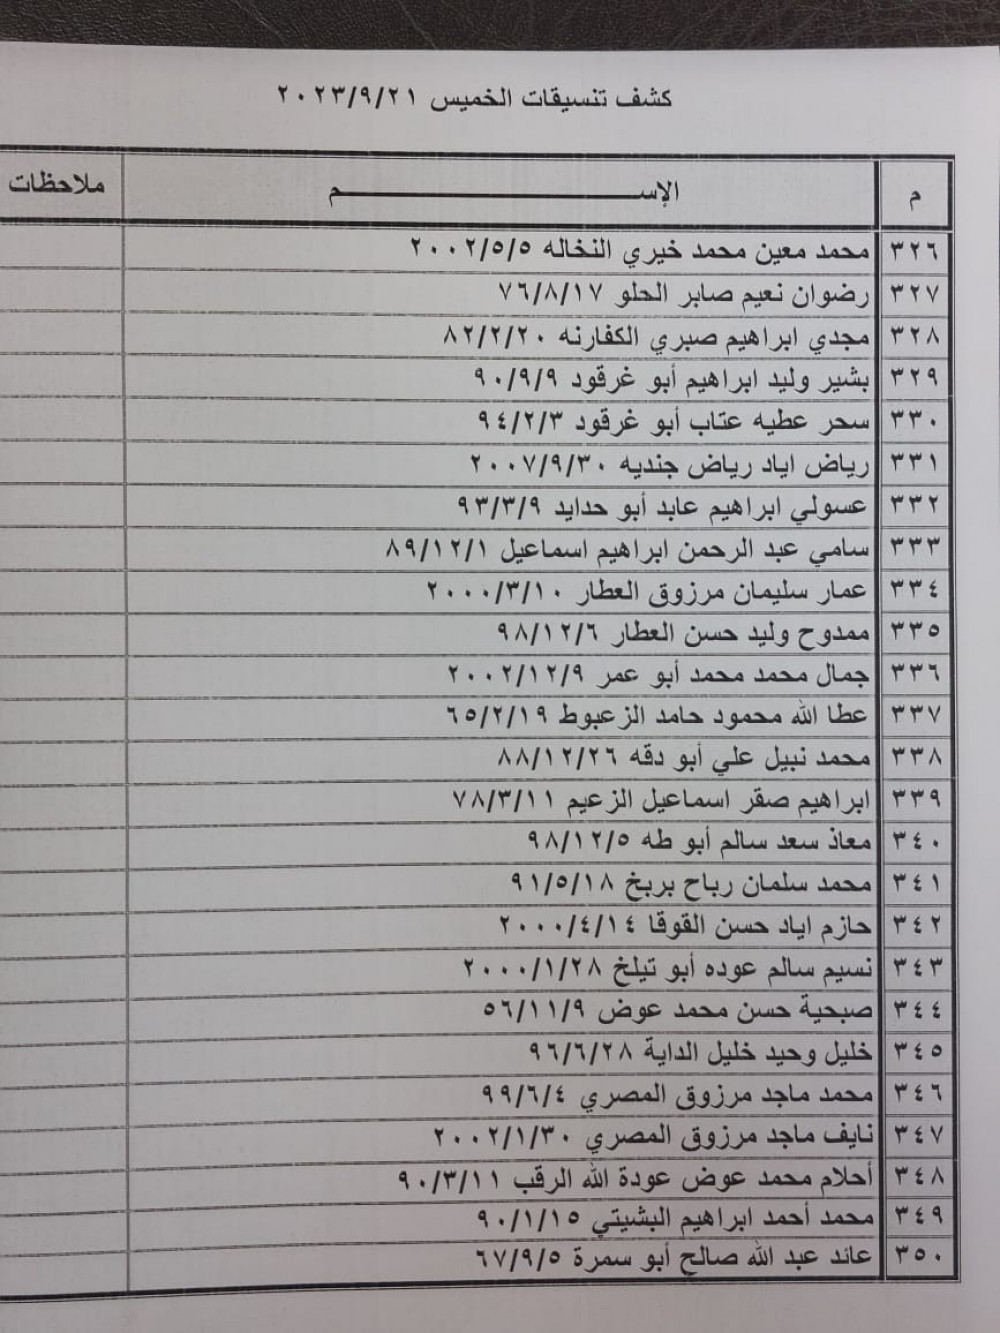 كشف تنسيقات الخميس ٢٠٢٣/٩/٢١
م الإســـــــــم ملاحظات
٣٢٦ محمد معين محمد خيري النخاله ٢٠٠٢/٥/٥
٣٢٧ رضوان نعيم صابر الحلو ٧٦/٨/١٧
٣٢٨ مجدي ابراهيم صبري الكفارنه ٨٢/٢/٢٠
٣٢٩ بشير وليد ابراهيم أبو غرقود ٩٠/٩/٩
٣٣٠ سحر عطيه عتاب أبو غرقود ٩٤/٢/٣
٣٣١ رياض اياد رياض جنديه ٢٠٠٧/٩/٣٠
٣٣٢ عسولي ابراهيم عابد أبو حدايد ٩٣/٣/٩
٣٣٣ سامي عبد الرحمن ابراهيم اسماعيل ٨٩/١٢/١
٣٣٤ عمار سليمان مرزوق العطار ٢٠٠٠/٣/١٠
٣٣٥ ممدوح وليد حسن العطار ٩٨/١٢/٦
٣٣٦ جمال محمد محمد أبو عمر ٢٠٠٢/١٢/٩
٣٣٧ عطا الله محمود حامد الزعبوط ٦٥/٢/١٩
٣٣٨ محمد نبيل علي أبو دقه ٨٨/١٢/٢٦
٣٣٩ ابراهيم صقر اسماعيل الزعيم ٧٨/٣/١١
٣٤٠ معاذ سعد سالم أبو طه ٩٨/١٢/٥
٣٤١ محمد سلمان رباح بربخ ٩١/٥/١٨
٣٤٢ حازم اياد حسن القوقا ٢٠٠٠/٤/١٤
٣٤٣ نسيم سالم عوده أبو تيلخ ٢٠٠٠/١/٢٨
٣٤٤ صبحية حسن محمد عوض ٥٦/١١/٩
٣٤٥ خليل وحيد خليل الداية ٩٦/٦/٢٨
٣٤٦ محمد ماجد مرزوق المصري ٩٩/٦/٤
٣٤٧ نايف ماجد مرزوق المصري ٢٠٠٢/١/٣٠
٣٤٨ أحلام محمد عوض عودة الله الرقب ٩٠/٣/١١
٣٤٩ محمد أحمد ابراهيم البشيتي ٩٠/١/١٥
٣٥٠ عائد عبد الله صالح أبو سمرة ٦٧/٩/٥